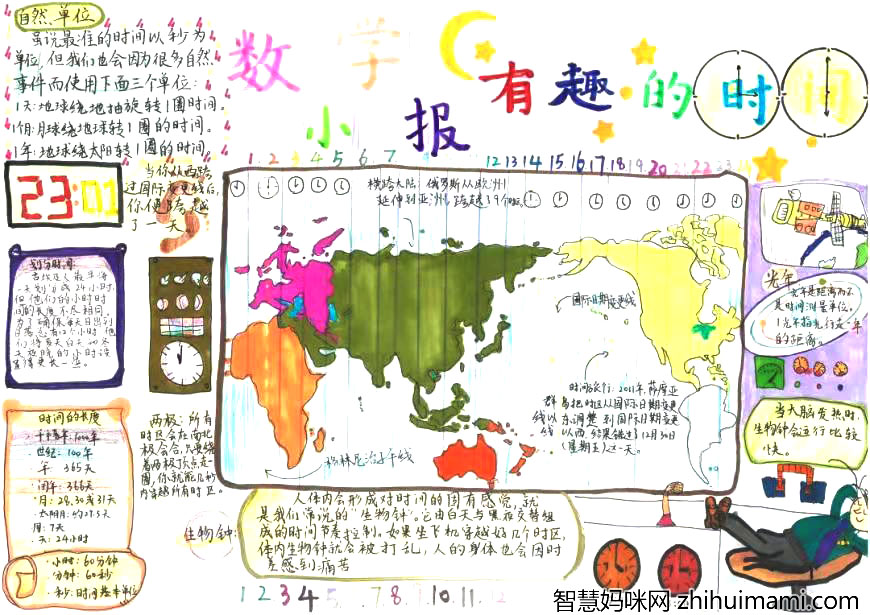 自然单位
虽说最准的时间以秒为
单位,但我们也会因为很多自然
事件而使用下面三个单位:
1天:地球绕地轴旋转1圈时间。
1个月:月球绕地球转1圈的时间。
1年:地球绕太阳转1圈的时间。
数学
小报
有趣的时间
1 2 3 4 5 6 7
12 13 14 15 16 17 18 19 20 21 22 23
23:01
当你从西跨
过国际日期变更线后,
你便跨越
了一天
横跨大陆:俄罗斯从欧洲
延伸到亚洲,跨越了9个时区
国际日期变更线
时间旅行:2011年,萨摩亚
群岛把时区从国际日期变更
线以东调整到国际日期变更
线以西,结果错过了12月30日
(星期五)这一天。
格林尼治子午线
划分时间:
一天划分成24小时,
但他们的小时时
间的长度不尽相同。
时间的长度
千禧年:1000年
世纪:100年
年 365天
闰年:366天
月:28,30或31天
太阴月:约29.5天
周:7天
天:24小时
小时:60分钟
分钟:60秒
秒:时间基本单位
两极:所有
时区会在南北
极会合,只要绕
着两极顶点走一
圈,你就能几秒
内穿越所有时区。
光年
光年是距离而不
是时间测量单位。
1光年指光行走一年
的距离。
当大脑发热时,
生物钟会运行比较
快。
生物钟:
人体内会形成对时间的固有感觉,就
是我们常说的“生物钟”。它由白天与黑夜交替组
成的时间节奏控制。如果坐飞机穿越好几个时区,
体内生物钟就会被打乱,人的身体也会因时
差感到痛苦
1 2 3 4 5 7 8 9 10 11 12
智慧妈咪网 zhihuimami.com